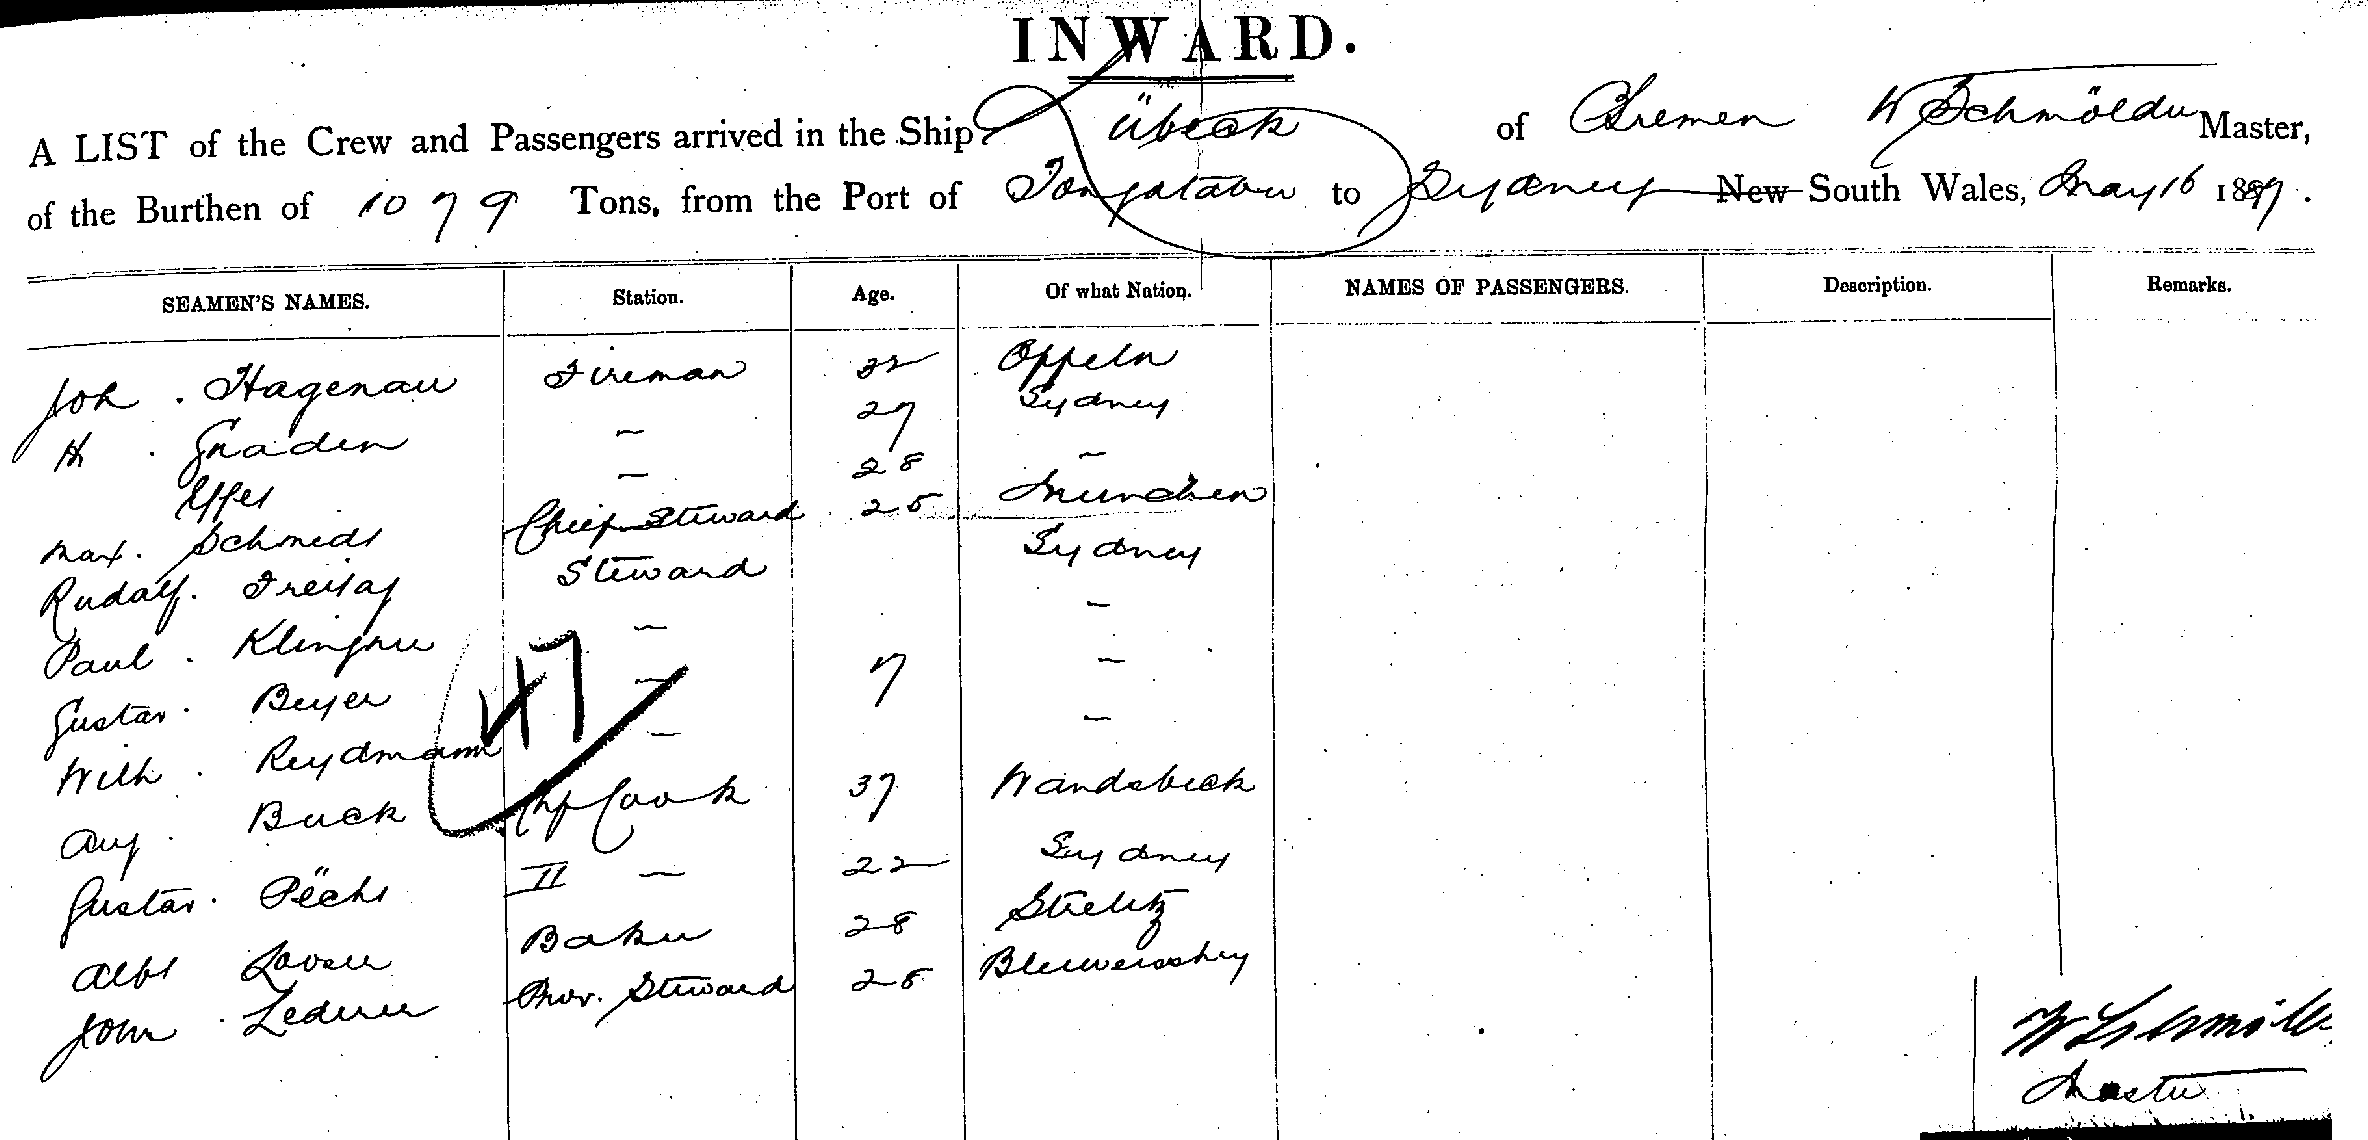 INWARD.
A LIST of the Crew and Passengers arrived in the Ship Lübeck of Bremen W Schmölder Master,
of the Burthen of 1079 Tons, from the Port of Tongatabu to Sydney New South Wales, May 16 1887.
SEAMEN'S NAMES. Station. Age. Of what Nation. NAMES OF PASSENGERS. Description. Remarks.
Joh. Hagenau Fireman 32 Oppeln
H. Gnaden — 27 Sydney
Effes — 28 —
Max. Schmidt Chief Steward 25 München
Rudolf. Freitag Steward Sydney
Paul. Klingner — —
Gustav. Beyer — 17 —
Wilh. Reydmann — —
47
Aug. Buck Chf Cook 37 Wandsbeck
Gustav. II — 22 Sydney
Albt Baker 28 Strelitz
John. Lederer Prov. Steward 25
W Schmölder
Master